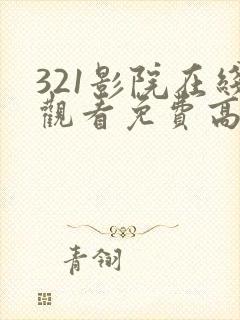 321影院在线
觀看免費高
青翎